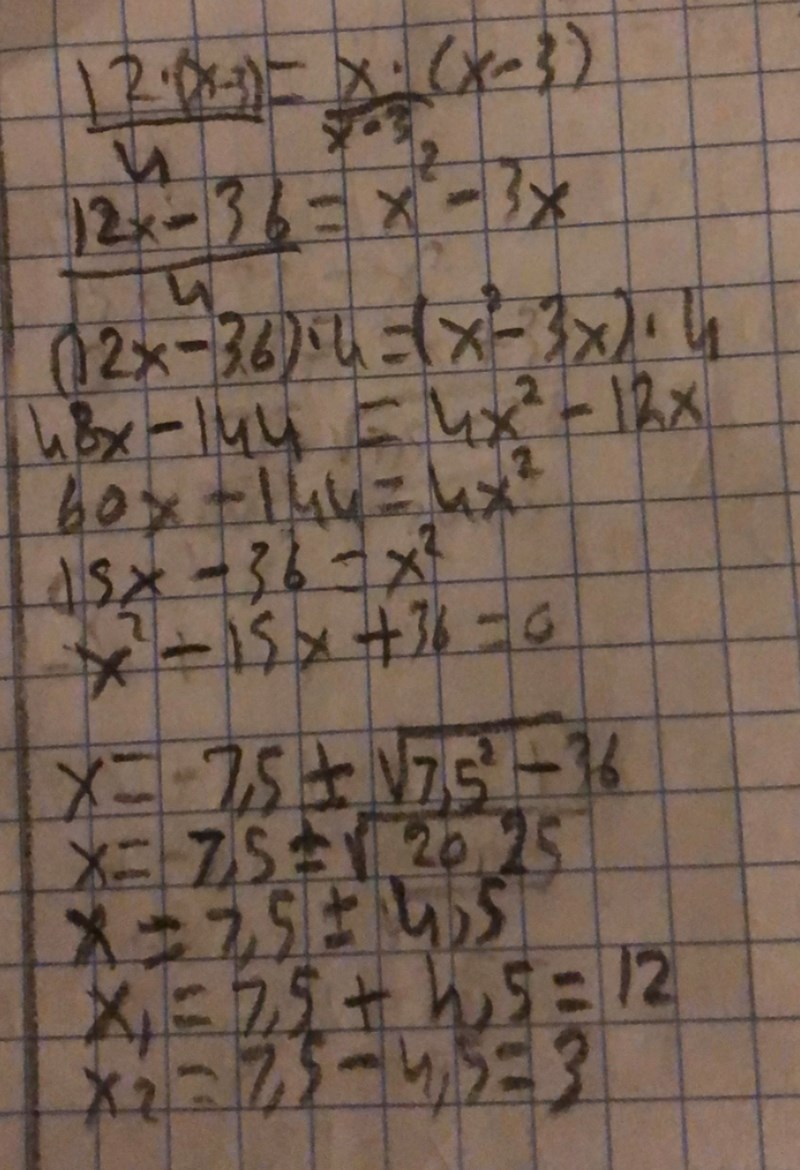 12·(x-3)/4 = x·(x-3)/x-3
12x-36/4 = x²-3x
(12x-36)·4=(x²-3x)·4
48x-144 = 4x²-12x
60x-144=4x²
15x-36=x²
x²-15x+36=0
x= 7,5±√7,5²-36
x= 7,5±√20,25
x=7,5±4,5
x₁=7,5+4,5=12
x₂=7,5-4,5=3